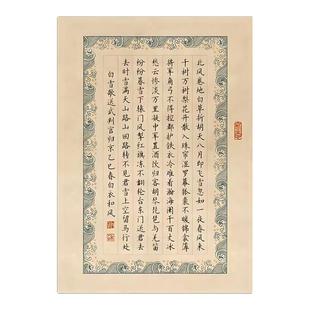 北风卷地白草折胡天八月即飞雪忽如一夜春风来
千树万树梨花开散入珠帘湿罗幕狐裘不暖锦衾薄
将军角弓不得控都护铁衣冷难着瀚海阑干百丈冰
愁云惨淡万里凝中军置酒饮归客胡琴琵琶与羌笛
纷纷暮雪下辕门风掣红旗冻不翻轮台东门送君去
去时雪满天山路山回路转不见君雪上空留马行处
白雪歌送武判官归京乙巳春白衣和风